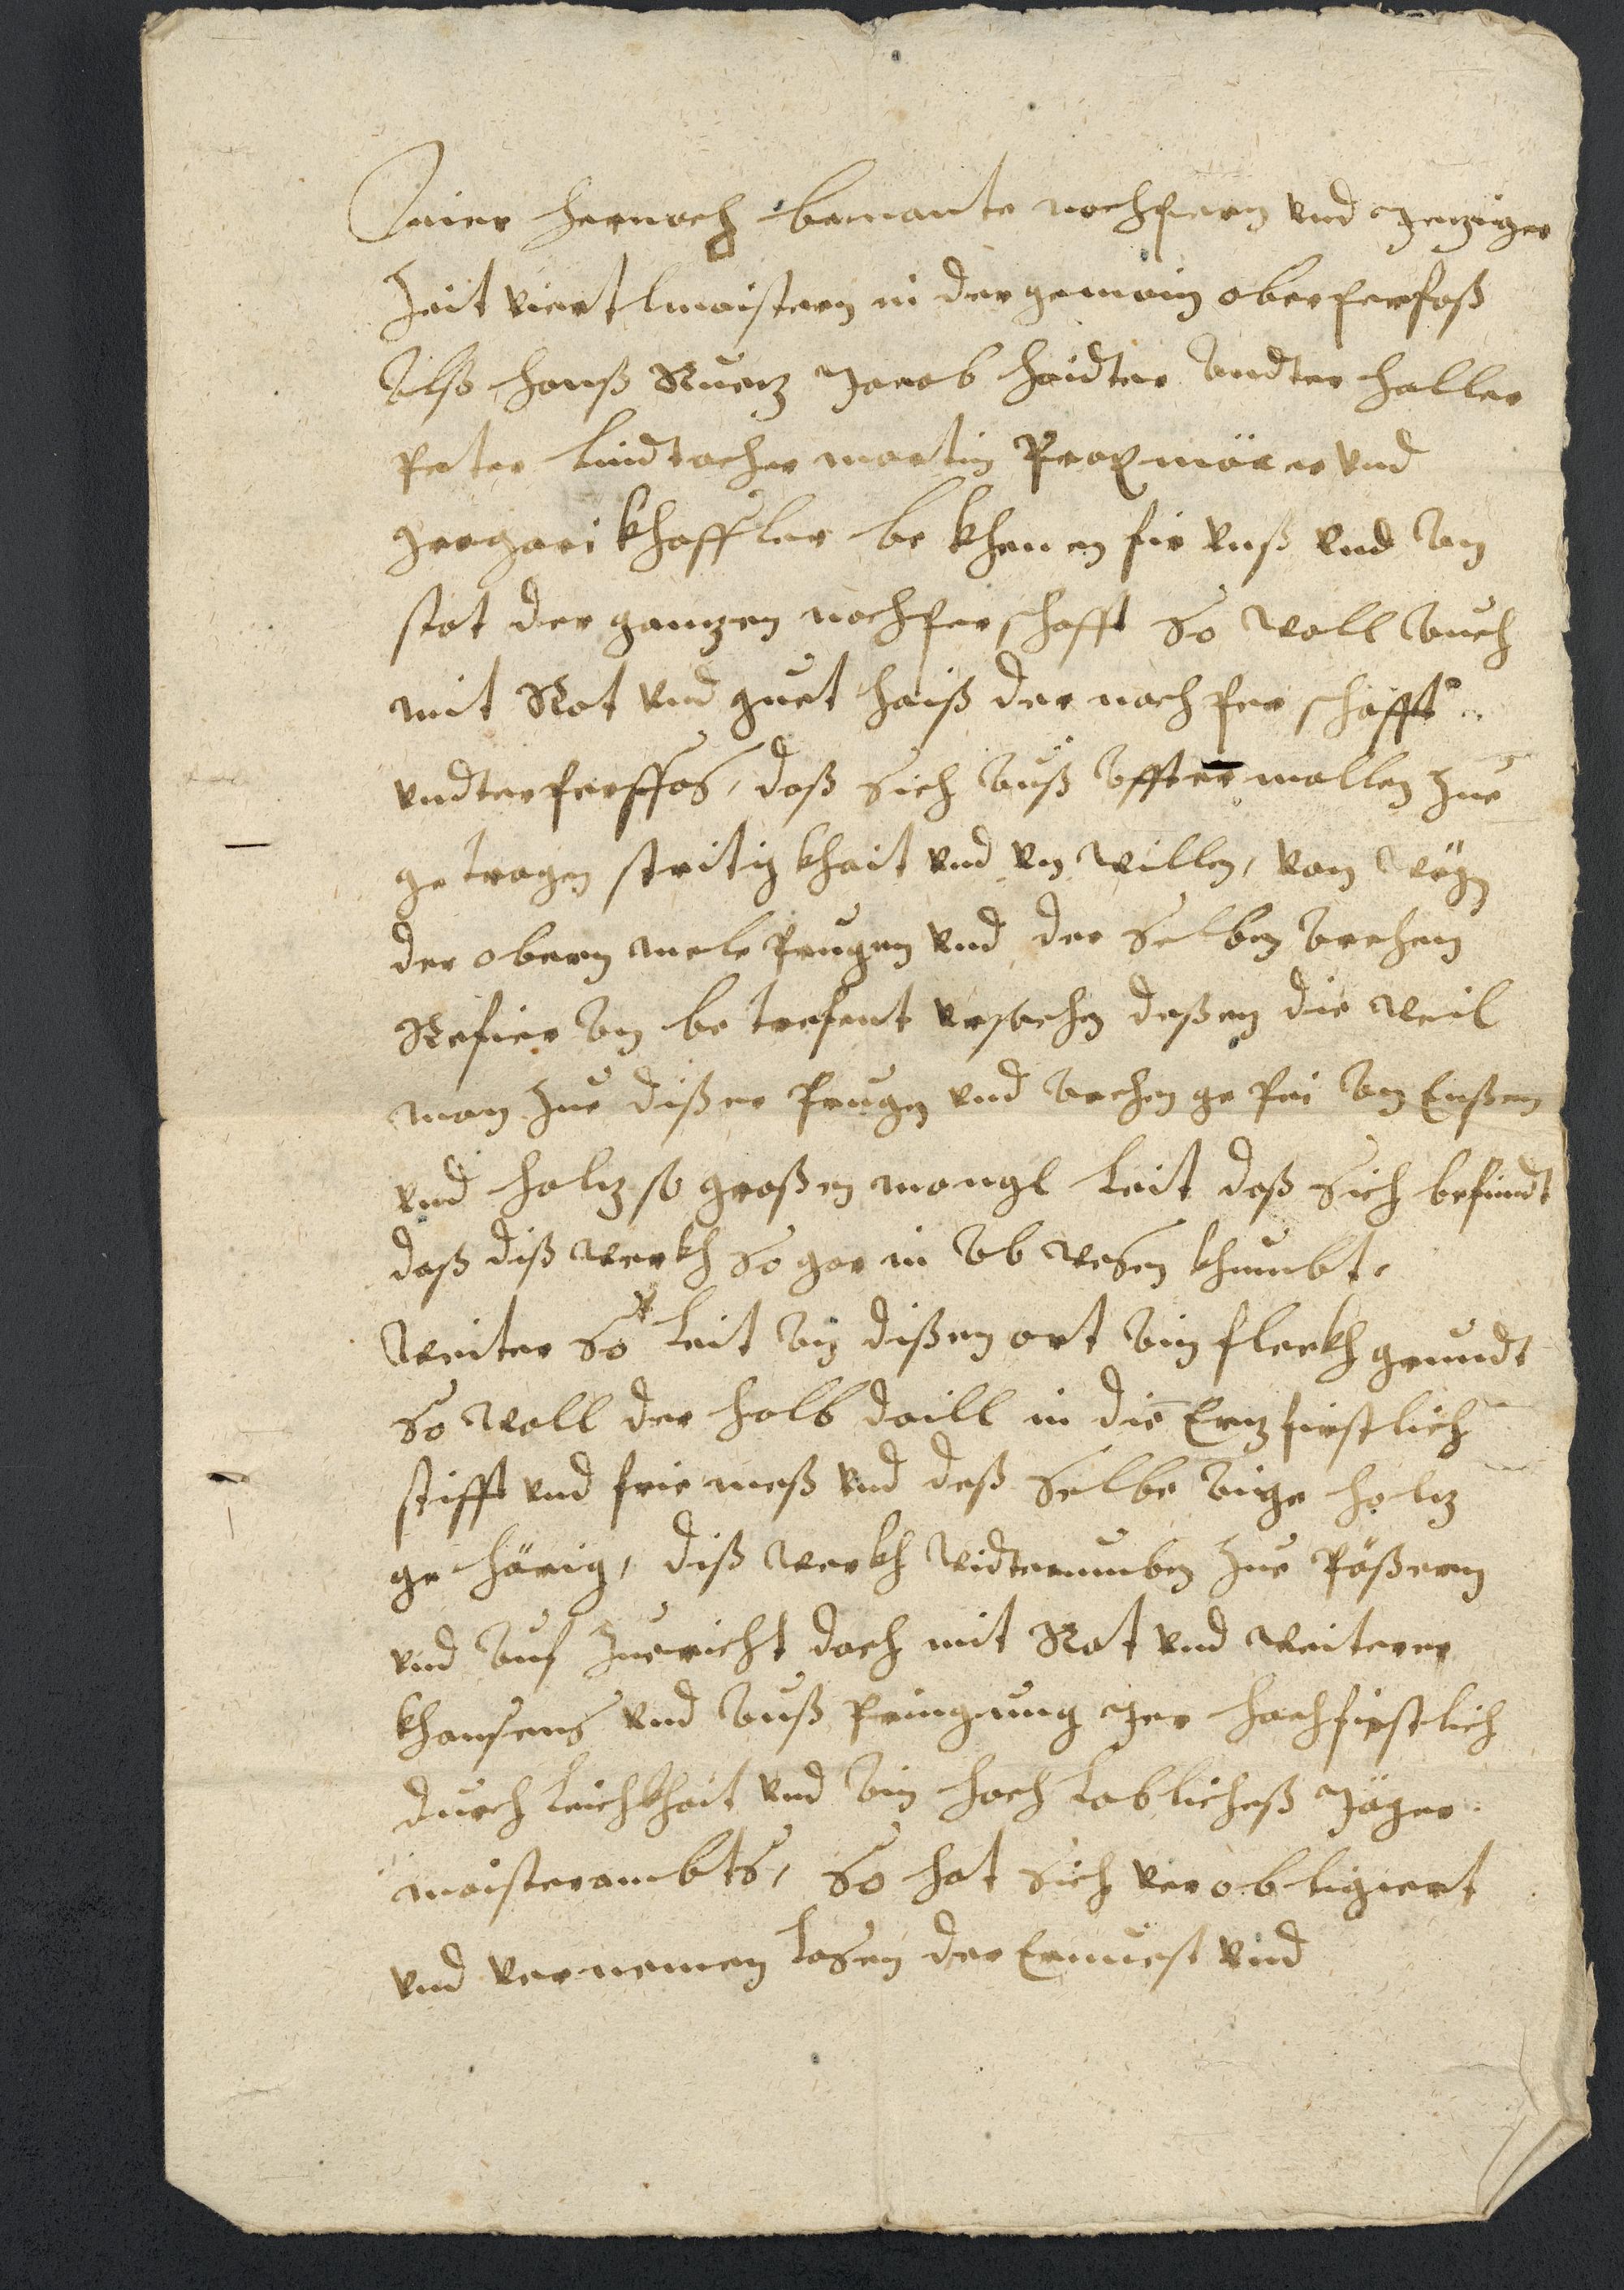 Mier hernoch bemante nochpern vnd yeziger
Zeit viertlmaistern in der gemain oberperfaß
Alß hanß Ruez Jacob haidter Andter haller
peter lindtacher martin Praxmärer vnd
gregari khaffler be khenen fir vnß vnd An
stat der ganzen nochperschafft So woll Auch
mit Rat vnd guet haiß der nochper schafft
vndterperffas, daß Sich Auß Affter mallen Zue
getragen stritigkhait vnd vn willen, von wögn
der obern mele prugen vnd der Selben Archen
Refier An be trefent vrsachn deßen die weil
man Zue dißer prugn vnd Archen ge pei An Eußen
vnd holz so großen mangl leit daß Sich befindt
daß diß werkh So gar in Ab weßen khumbt
weiter So leit An dißen ort Ain fleckh grundt
So woll der halb daill in die Erzfirstlich
stifft vnd frie meß vnd deß Selbe Aige holz
ge hörig, diß werkh widterumben Zue pößern
vnd Auf Zuericht doch mit Rat vnd weiterer
khonsens vnd Auß pringung Jer hochfirstlich
durchleichkhait vnd Ain hoch lobliches Jäger
maisterambts, So hat Sich verobligiert
vnd vernemen laßen der Ernuest vnd